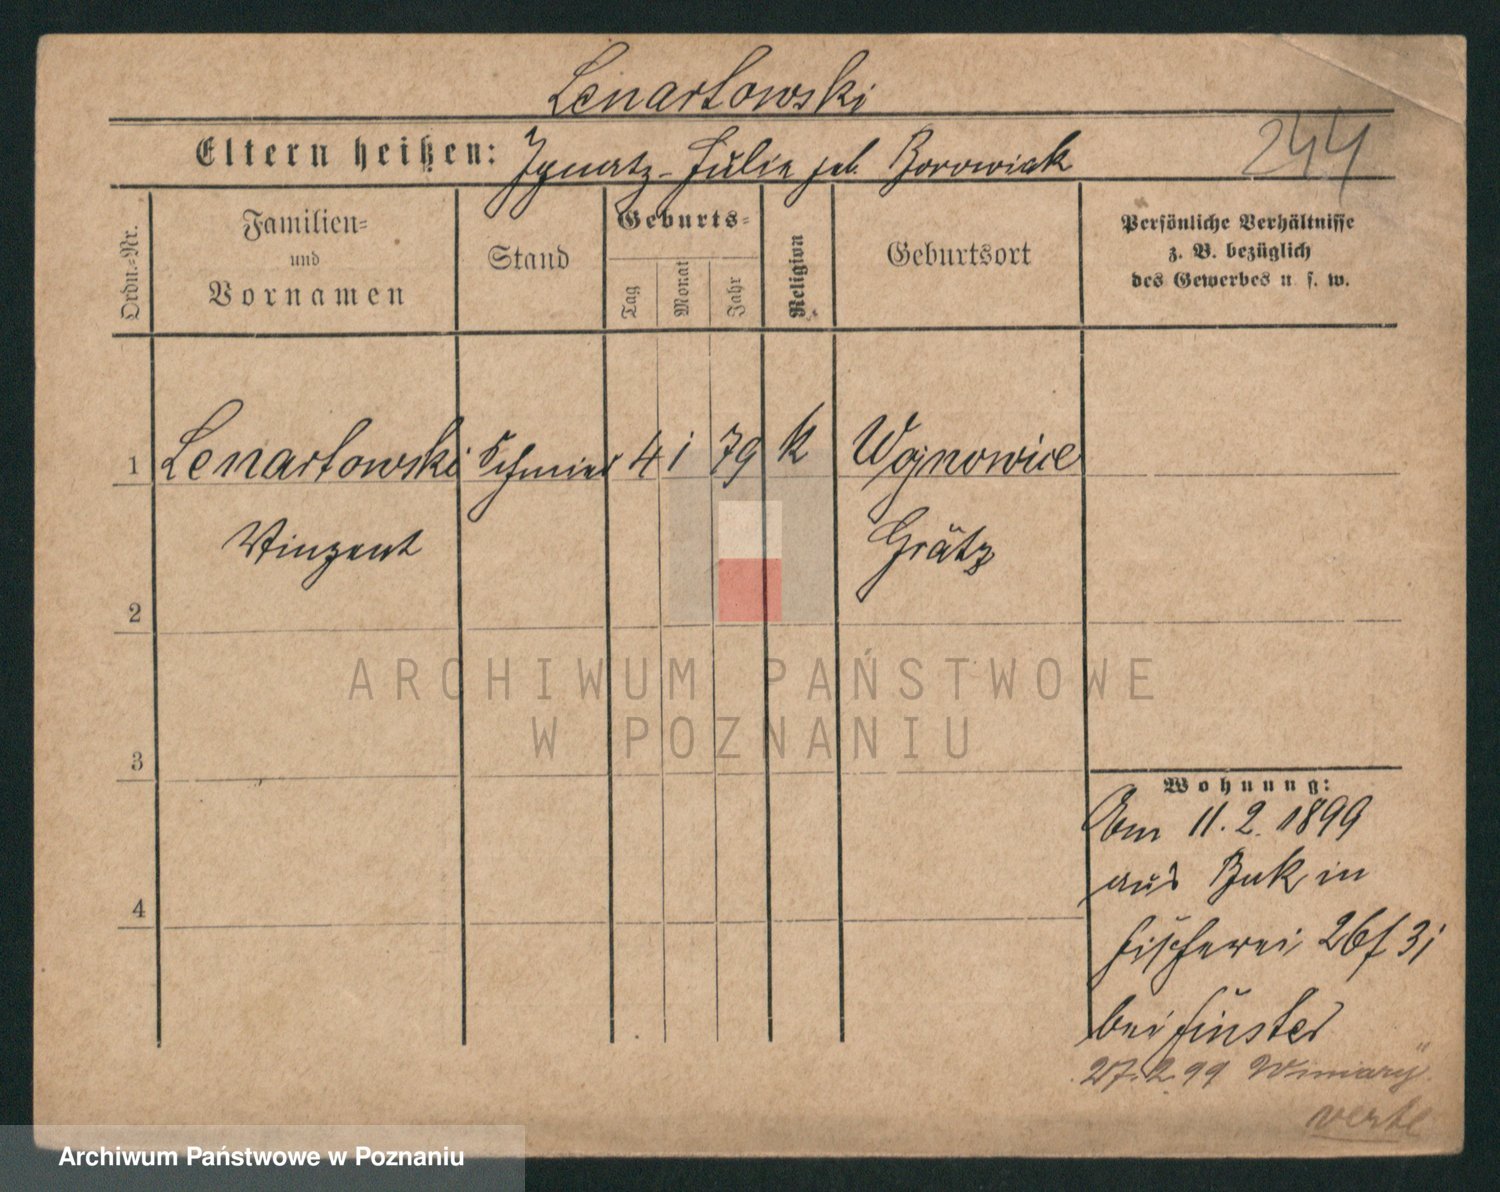 Lenartowski
244
Eltern heißen: Ignatz - Julie geb. Borowiak
Ordn.-Nr.
Familien-
und
Vornamen
Stand
Geburts-
Tag
Monat
Jahr
Religion
Geburtsort
Persönliche Verhältnisse
z. B. bezüglich
des Gewerbes u. s. w.
1 Lenartowski Schmied 4 1 79 k Wojnowice
Vinzent Grätz
2
ARCHIWUM PAŃSTWOWE
W POZNANIU
3
Wohnung:
Am 11. 2. 1899
aus Buk in
4
Fischerei 26
bei
27. 2. 99 Winiary
verte
Archiwum Państwowe w Poznaniu